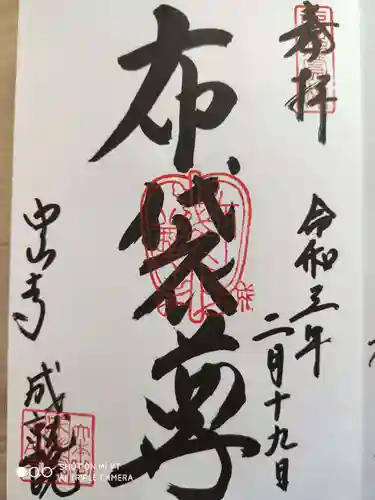 奉拝
令和三年
二月十九日
布袋尊
中山寺 成就院
SHOT ON MI 9T
AI TRIPLE CAMERA